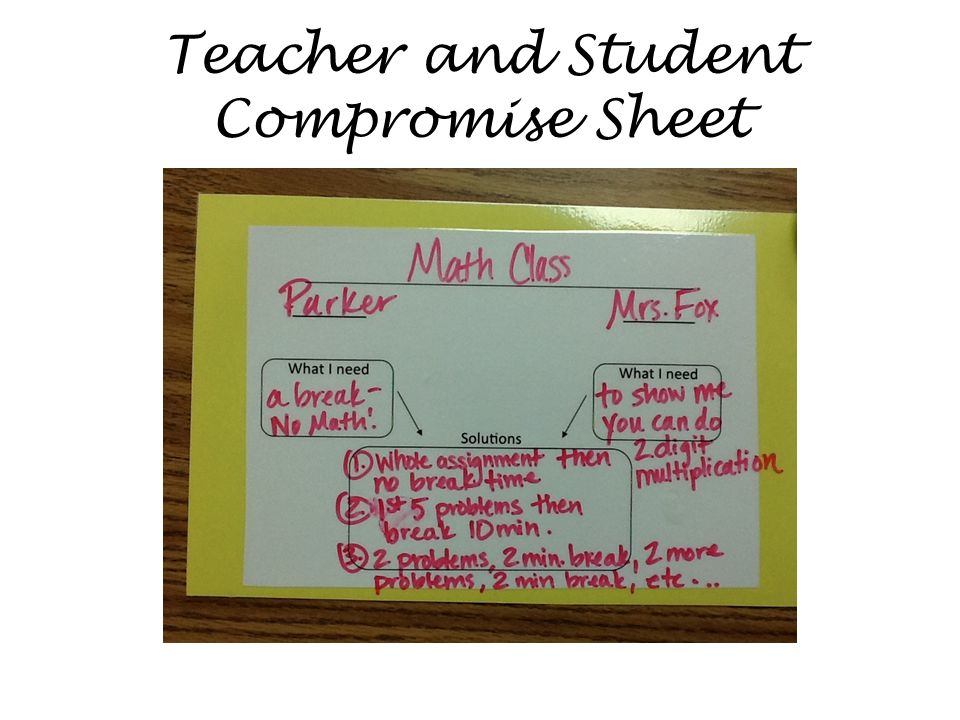 Teacher and Student
Compromise Sheet
Math Class
Parker
Mrs. Fox
What I need
a break -
No Math!
What I need
to show me
you can do
2 digit
multiplication
Solutions
1. Whole assignment then
no break time
2. 1st 5 problems then
break 10 min.
3. 2 problems, 2 min. break, 2 more
problems, 2 min break, etc...